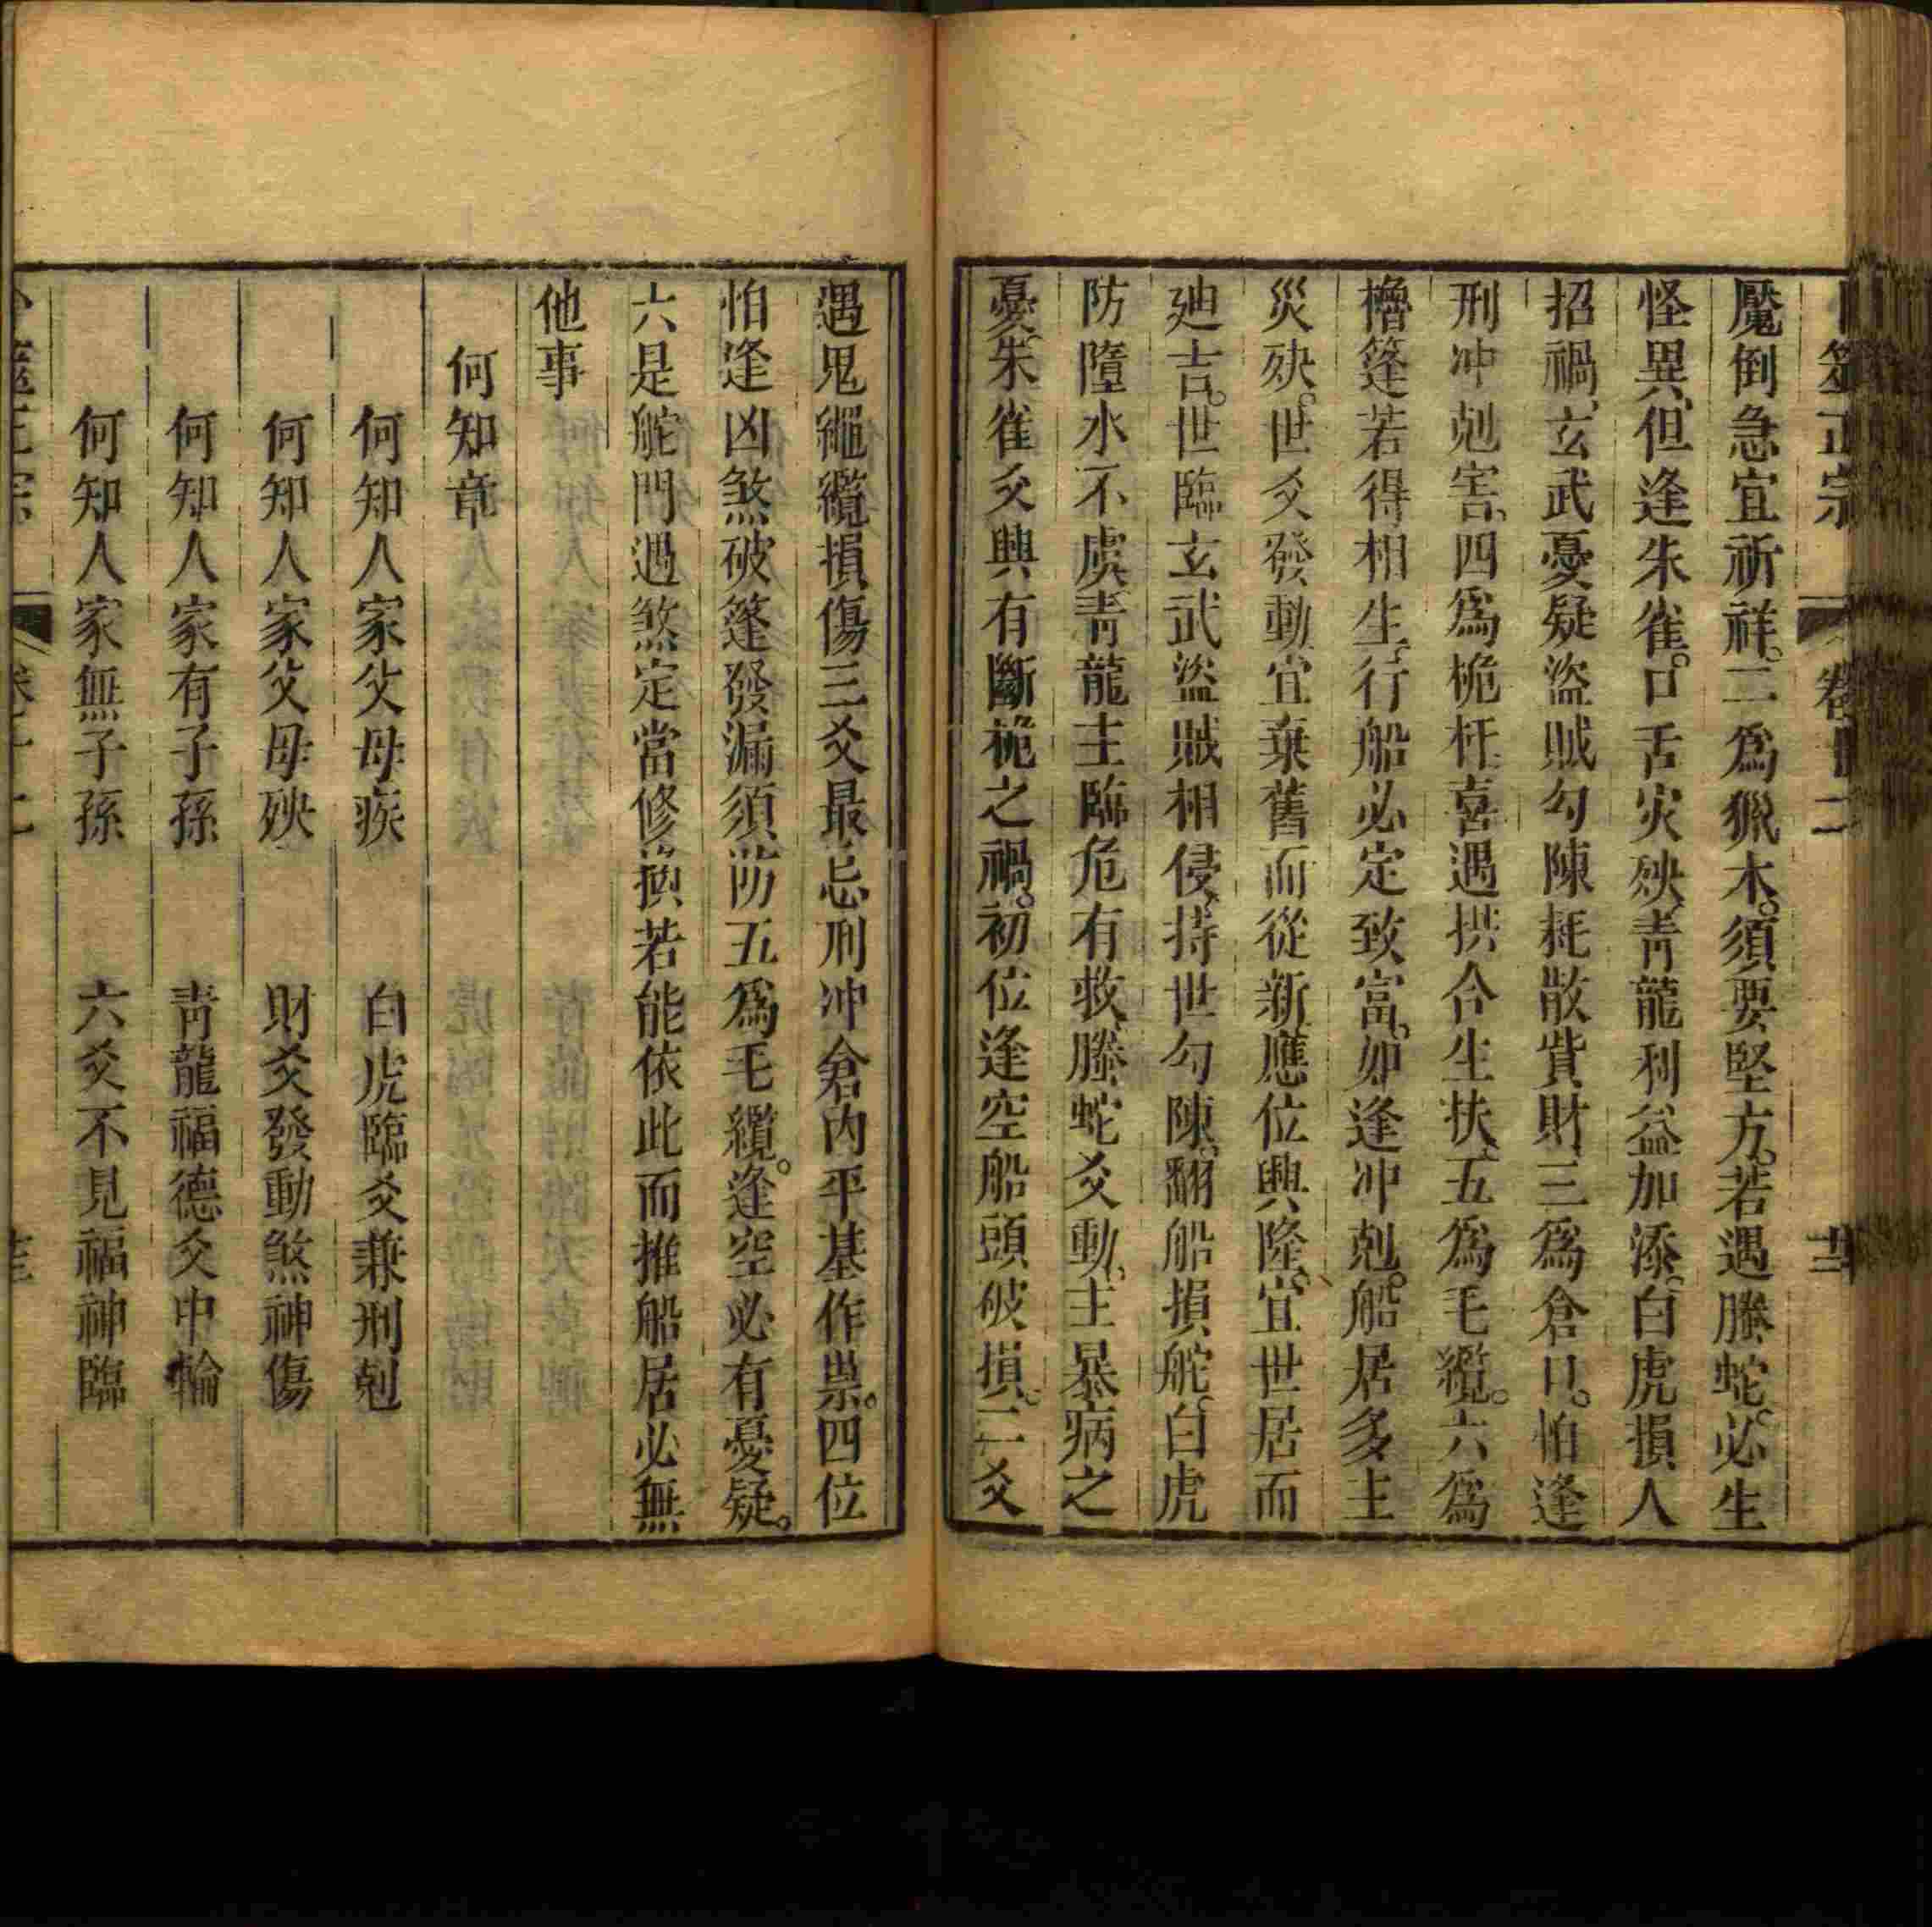 卜筮正宗 卷十二
魘倒急宜祈祥。二為獵木。須要堅方。若遇螣蛇。必生
怪異、但逢朱雀。口舌灾殃、青龍利益加添。白虎損人
招禍、玄武憂疑盜賊、勾陳耗散貲財、三為倉口。怕逢
刑冲剋害、四為桅杆喜遇拱合生扶、五為毛纜。六為
櫓篷若得相生、行船必定致富。如逢冲剋。船居多主
災殃。世爻發動宜棄舊而從新、應位興隆、宜世居而
廸吉。世臨玄武盜賊相侵、持世勾陳、翻船損舵。白虎
防墮水不虞青龍主臨危有救、螣蛇爻動、主暴病之
憂、朱雀爻興有斷桅之禍。初位逢空船頭破損。二爻
遇鬼繩纜損傷三爻最忌刑冲倉内平基作祟。四位
怕逢凶煞破篷發漏須防五為毛纜。逢空必有憂疑。
六是舵門遇煞定當修換若能依此而推船居必無
他事
何知章
何知人家父母疾 白虎臨爻兼刑剋
何知人家父母殃 財爻發動煞神傷
何知人家有子孫 青龍福德爻中輪
何知人家無子孫 六爻不見福神臨